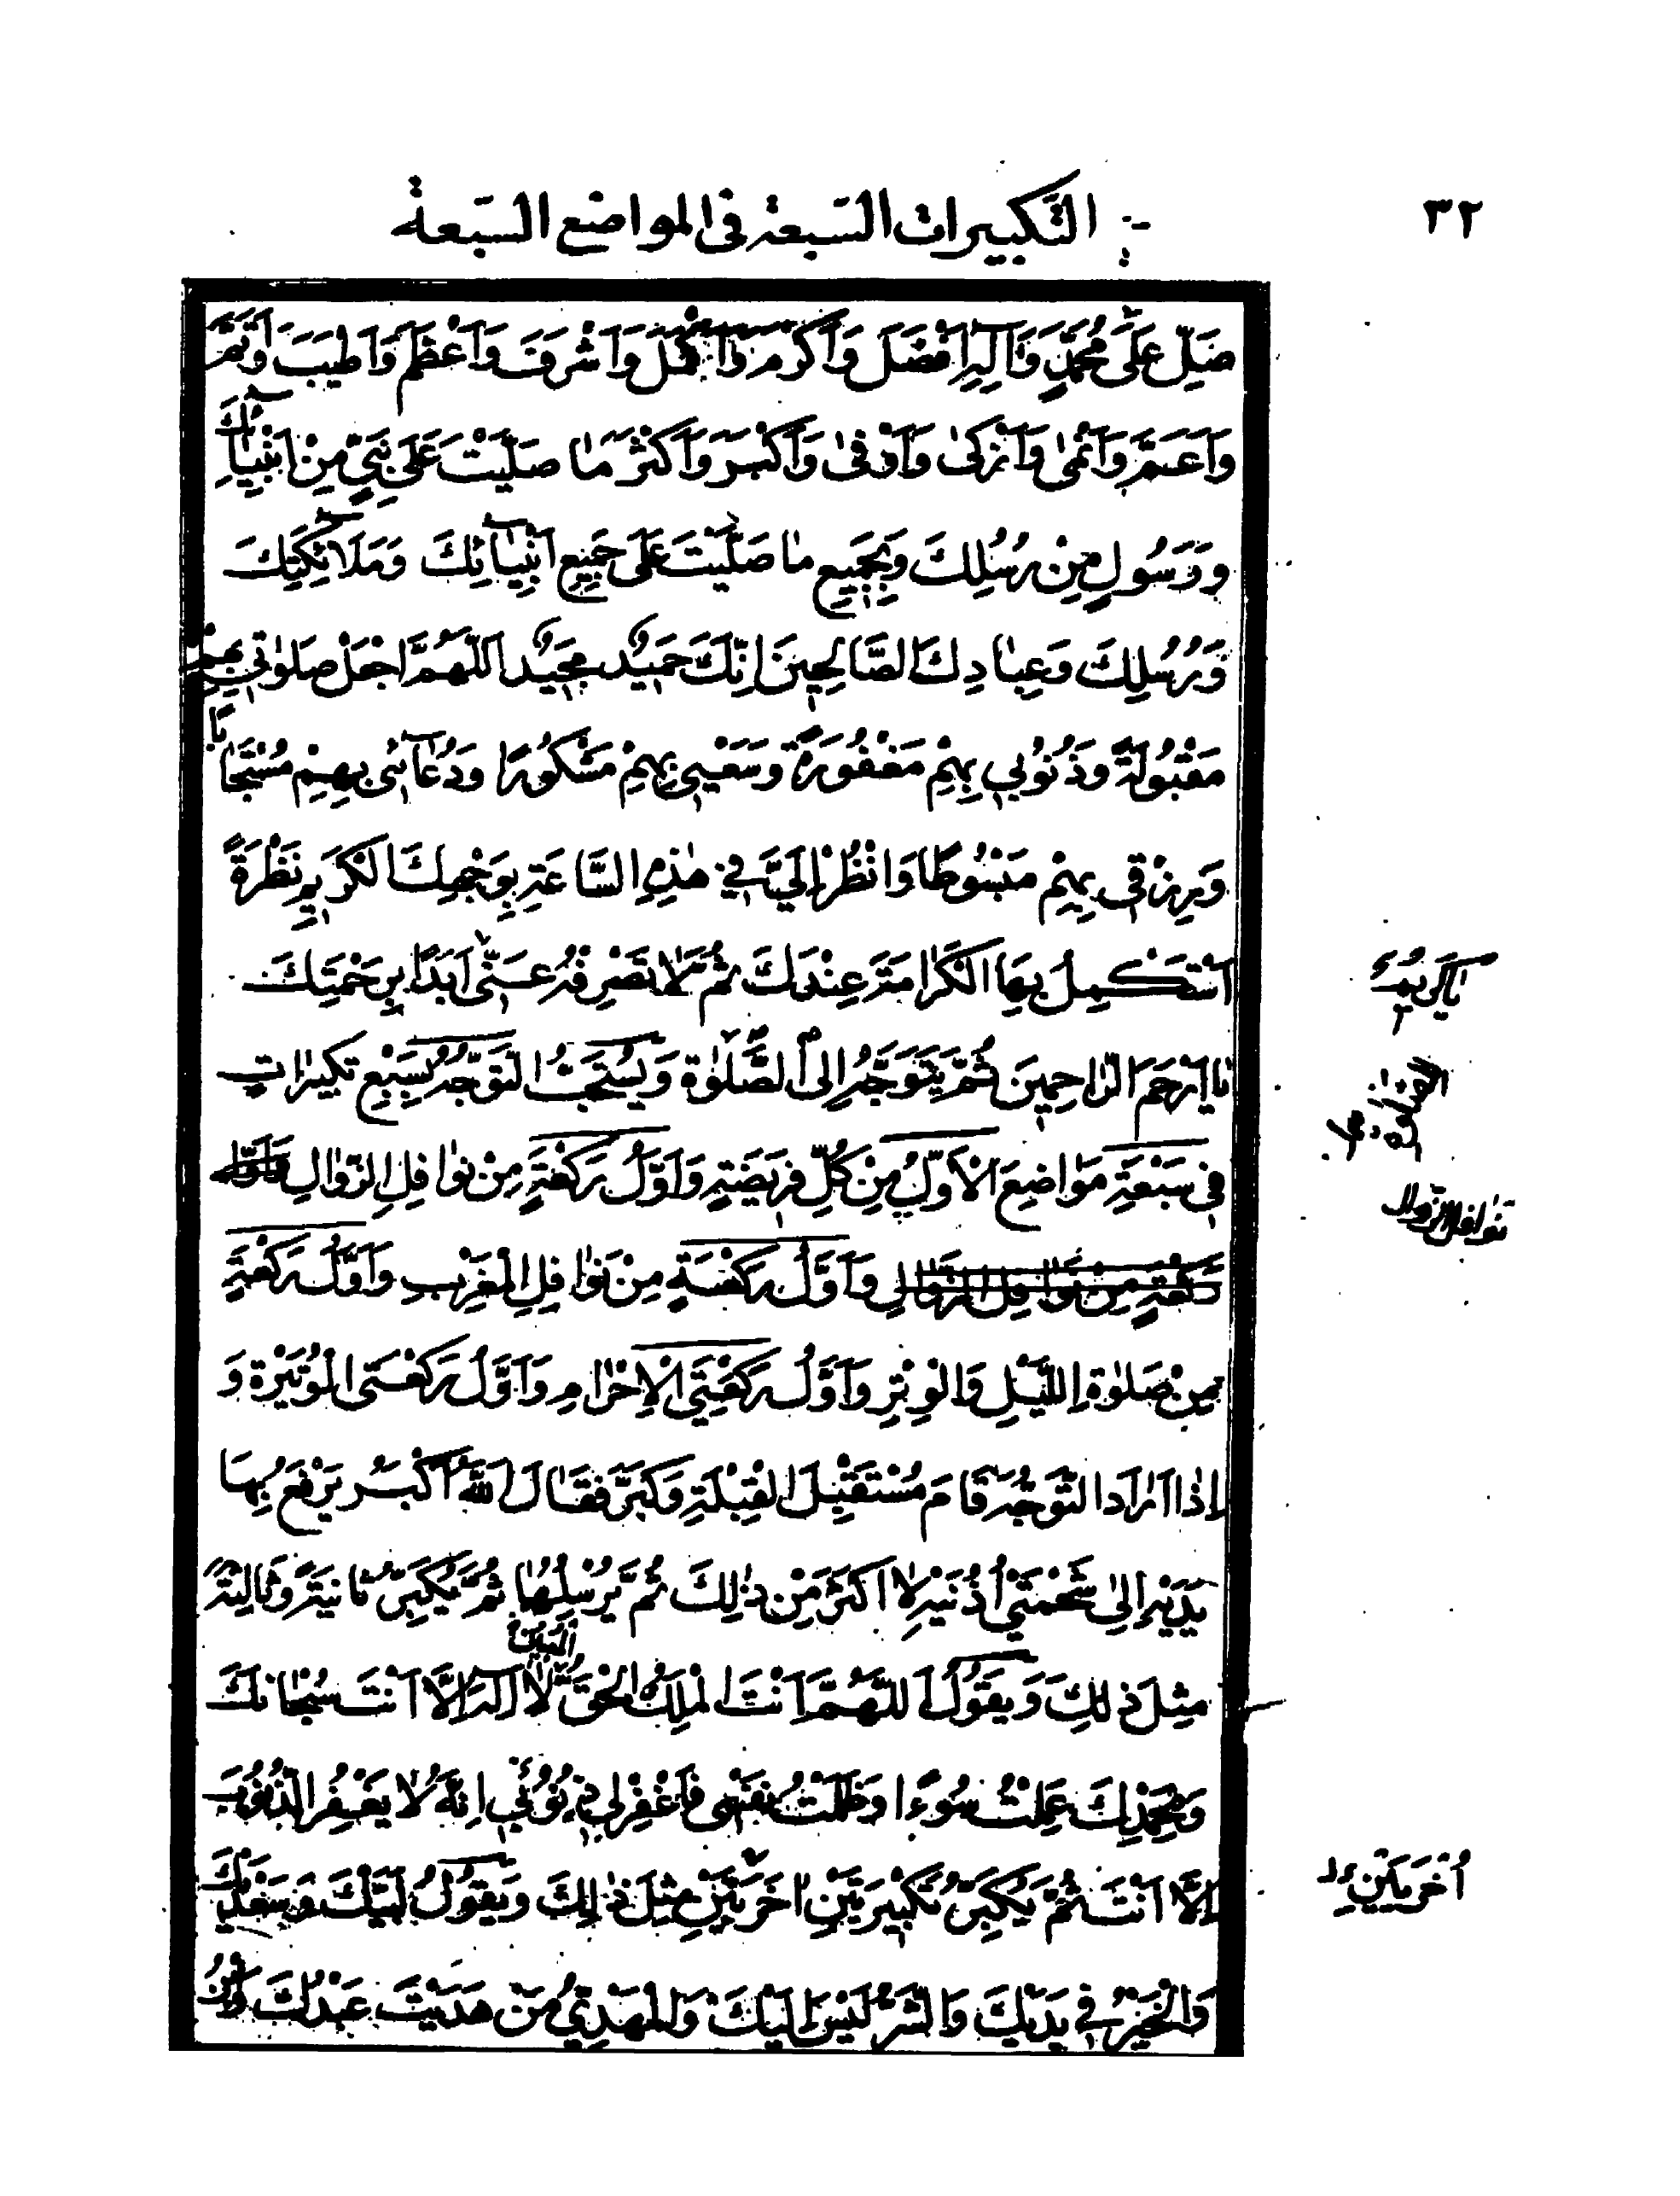 ٣٢
التكبيرات السبعة فى المواضع السبعة
صَلِّ عَلَى مُحَمَّدٍ وَآلِهِ اَفْضَلَ وَاَكْرَمَ وَاَكْمَلَ وَاَشْرَفَ وَاَعْظَمَ وَاَطْيَبَ وَاَتَمَّ
وَاَعَمَّ وَاَنْمىٰ وَاَزْكىٰ وَاَوْفىٰ وَاَكْبَرَ وَاَكْثَرَ مٰا صَلَّيْتَ عَلَى نَبِيٍّ مِنْ اَنْبِيٰائِكَ
وَرَسُولٍ مِنْ رُسُلِكَ وَبِجَمِيعِ مٰا صَلَّيْتَ عَلَى جَمِيعِ اَنْبِيٰائِكَ وَمَلَائِكَتِكَ
وَرُسُلِكَ وَعِبٰادِكَ الصَّالِحِينَ اِنَّكَ حَمِيدٌ مَجِيدٌ اَللّهُمَّ اجْعَلْ صَلوٰتي بِهِمْ
مَقْبُولَةً وَذُنُوبي بِهِمْ مَغْفُورَةً وَسَعْيي بِهِمْ مَشْكُورًا وَدُعٰائى بِهِمْ مُسْتَجٰابًا
وَرِزْقي بِهِمْ مَبْسُوطًا وَانْظُرْ اِلَيَّ في هٰذِهِ السَّاعَةِ بِوَجْهِكَ الْكَرِيمِ نَظْرَةً
اَسْتَكْمِلُ بِهَا الْكَرٰامَةَ عِنْدَكَ ثُمَّ لٰا تَصْرِفْهُ عَنّى اَبَدًا بِرَحْمَتِكَ
يٰا اَرْحَمَ الرّٰاحِمِينَ ثُمَّ يَتَوَجَّهُ اِلىَ الصَّلٰوةِ وَيُسْتَحَبُّ التَّوَجُّهُ بِسَبْعِ تَكْبيرٰاتٍ
في سَبْعَةِ مَوٰاضِعَ الْاَوَّلُ مِنْ كُلِّ فَرِيضَةٍ وَاَوَّلُ رَكْعَةٍ مِنْ نَوٰافِلِ الزَّوٰالِ وَاَوَّلُ
رَكْعَةٍ مِنْ نَوٰافِلِ الزَّوٰالِ وَاَوَّلُ رَكْعَةٍ مِنْ نَوٰافِلِ الْمَغْرِبِ وَاَوَّلُ رَكْعَةٍ
مِنْ صَلوٰةِ اللَّيْلِ وَالْوِتْرِ وَاَوَّلُ رَكْعَتَيِ الْاِحْرٰامِ وَاَوَّلُ رَكْعَتَى الْوُتَيْرَةِ وَ
اِذٰا اَرٰادَ التَّوَجُّهَ قَامَ مُسْتَقْبِلَ الْقِبْلَةِ وَكَبَّرَ فَقٰالَ اَللّٰهُ اَكْبَرُ يَرْفَعُ بِهَا
يَدَيْهِ اِلىٰ شَحْمَتَيْ اُذُنَيْهِ لٰا اَكْثَرَ مِنْ ذٰلِكَ ثُمَّ يُرْسِلُهُمٰا ثُمَّ يُكَبِّرُ ثٰانِيَةً وَثٰالِثَةً
الْمُبينُ
مِثْلَ ذلِكَ وَيَقُولُ اَللّهُمَّ اَنْتَ الْمَلِكُ الْحَقُّ لٰا اِلهَ اِلَّا اَنْتَ سُبْحٰانَكَ
وَبِحَمْدِكَ عَمِلْتُ سُوءًا وَظَلَمْتُ نَفْسي فَاغْفِرْ لي ذُنُوبي اِنَّهُ لٰا يَغْفِرُ الذُّنُوبَ
اِلَّا اَنْتَ ثُمَّ يُكَبِّرُ تَكْبيرَتَيْنِ اُخْرَيَيْنِ مِثْلَ ذٰلِكَ وَيَقُولُ لَبَّيْكَ وَسَعْدَيْكَ
وَالْخَيْرُ في يَدَيْكَ وَالشَّرُّ لَيْسَ اِلَيْكَ وَالْمَهْدِيُّ مَنْ هَدَيْتَ عَبْدُكَ وَابْنُ
نوٰافل الزوال